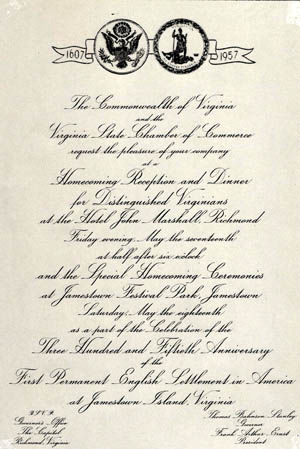 1607 1957
The Commonwealth of Virginia
and the
Virginia State Chamber of Commerce
request the pleasure of your company
at a
Homecoming Reception and Dinner
for Distinguished Virginians
at the Hotel John Marshall, Richmond
Friday evening, May the seventeenth
at half after six o'clock
and the Special Homecoming Ceremonies
at Jamestown Festival Park, Jamestown
Saturday, May the eighteenth
as a part of the Celebration of the
Three Hundred and Fiftieth Anniversary
of the
First Permanent English Settlement in America
at Jamestown Island, Virginia
R.S.V.P.
Governor's Office
The Capitol
Richmond, Virginia
Thomas Bahnson Stanley
Governor
Frank Arthur Ernst
President